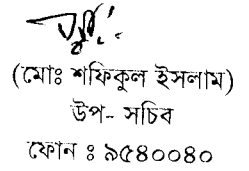 (মোঃ শফিকুল ইসলাম)
উপ- সচিব
ফোন ঃ ৯৫৪০০৪০